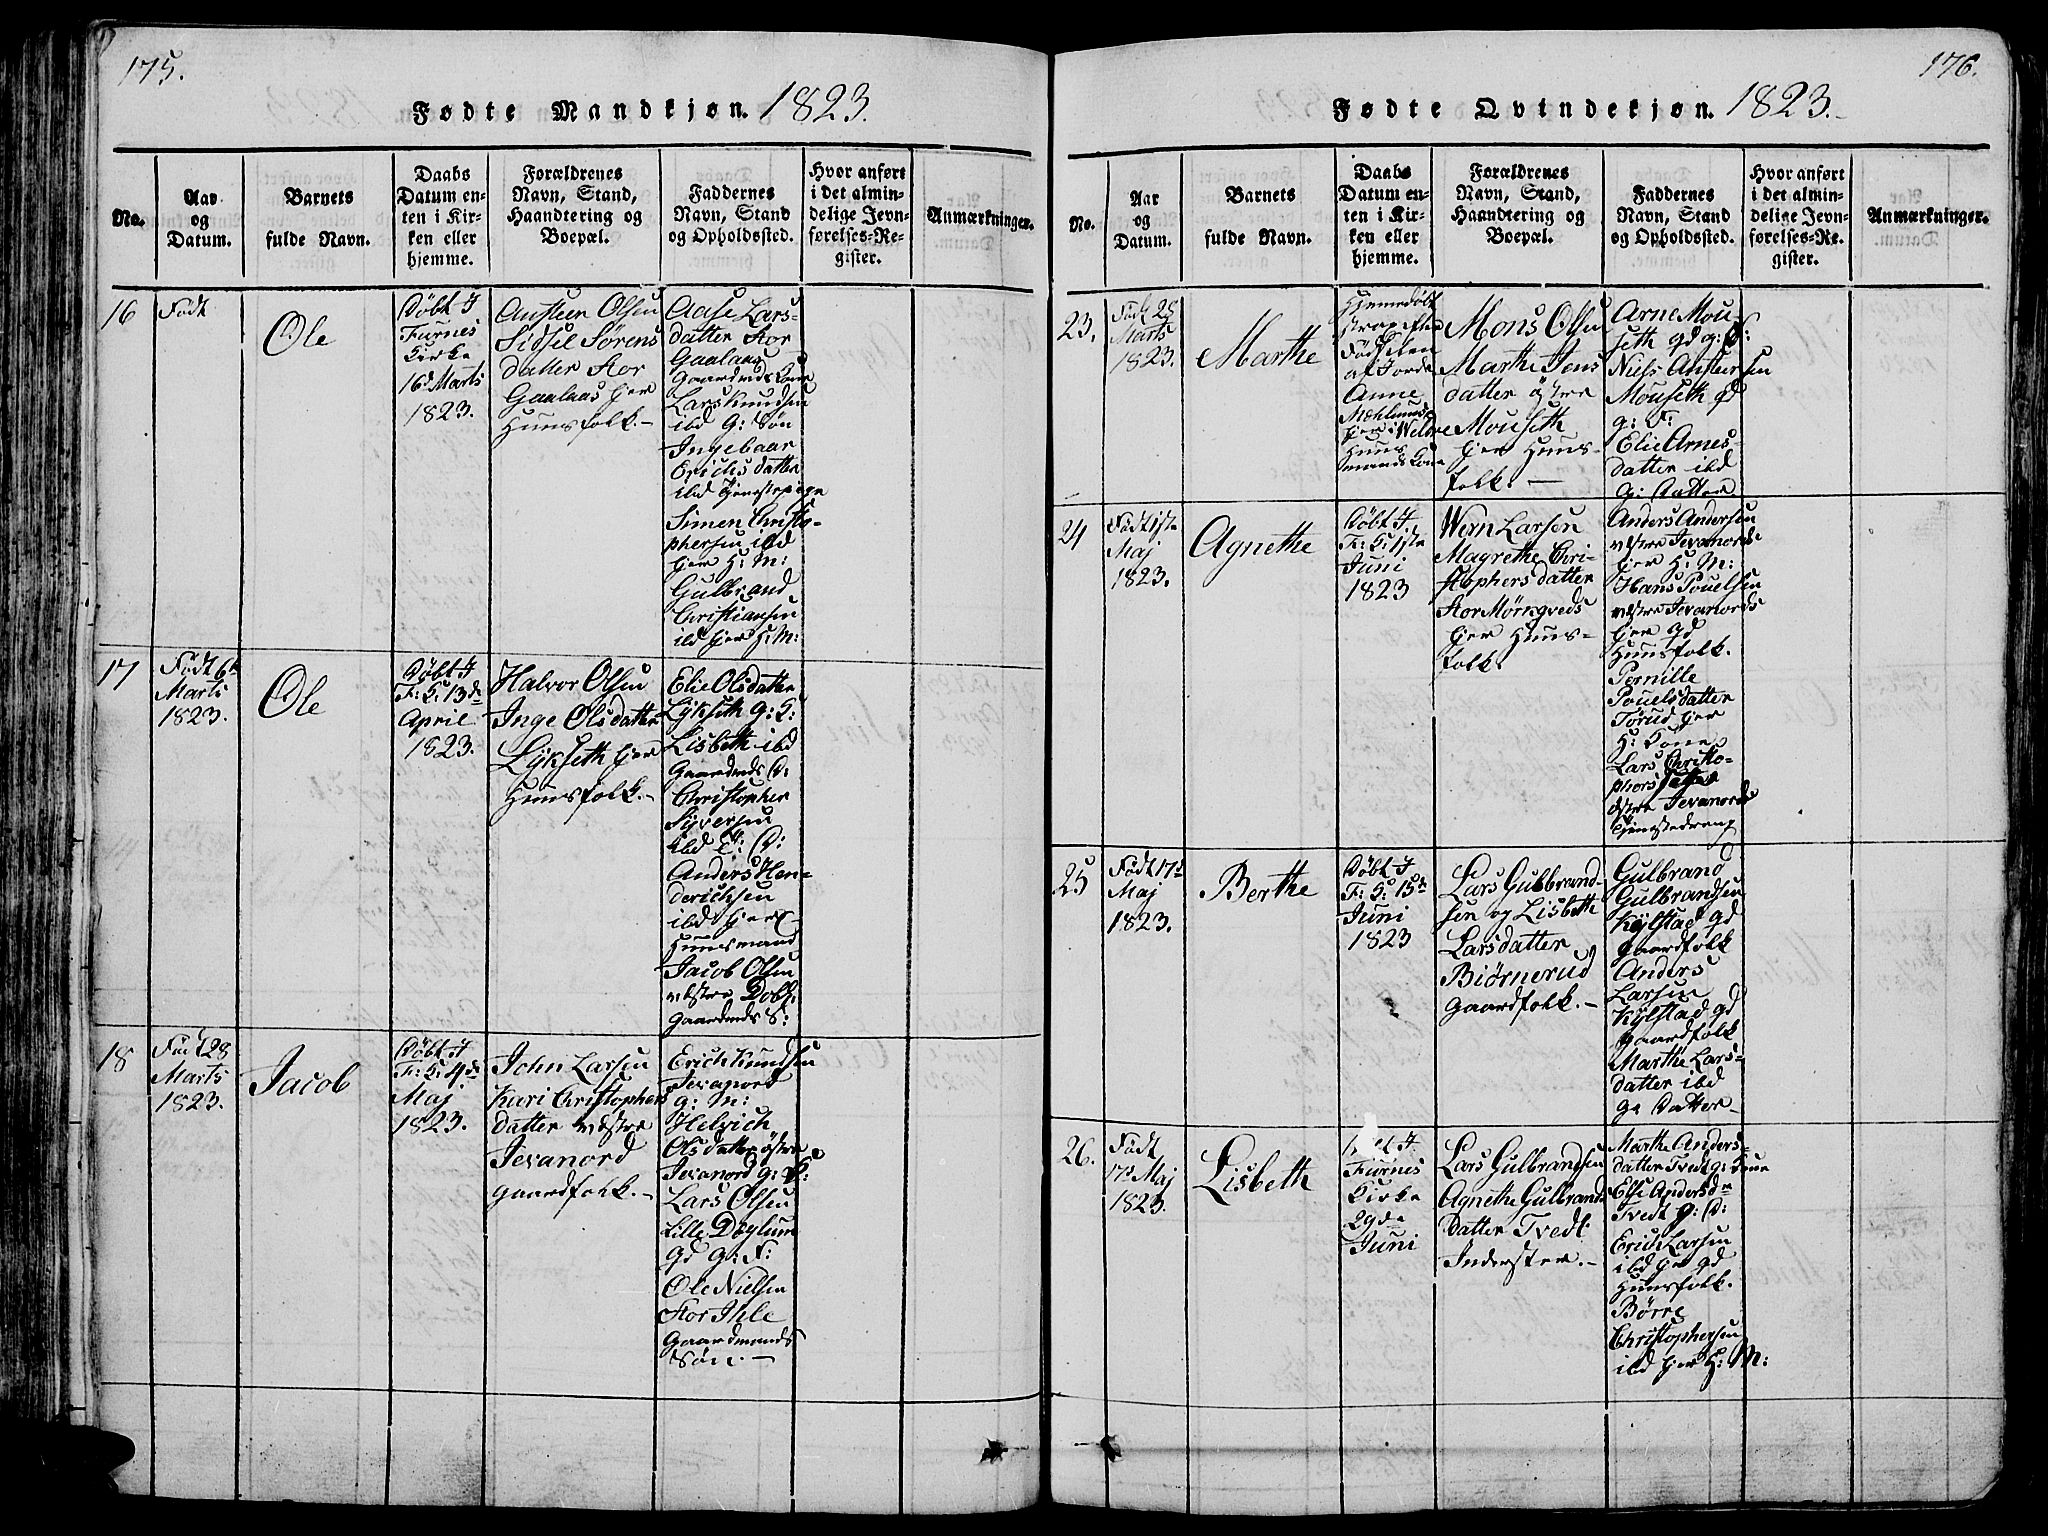 175.
Fødte Mandkjøn. 1823.
No.
Aar
og
Datum.
Barnets
fulde Navn.
Daabs
Datum en-
ten i Kir-
ken eller
hjemme.
Forældrenes
Navn, Stand,
Haandtering og
Boepæl.
Faddernes
Navn, Stand
og Opholdssted.
Hvor anført
i det almin-
delige Jevn-
førelses-Re-
gister.
Anmærkninger.
16
Født
Ole
Døbt I
Furnes
Kirke
16d Marts
1823.
Austeen Olsen
Sidsel Sørens
datter Stor
Gaalaas Eier
Huusfolk.-
Aase Lars-
datter Stor
Gaalaas
Gaardmds Kone
Lars Knudsen
ibd G: Søn
Ingebaar
Erichsdatter
ibd Tjenestepige
Simen Christo-
phersen ibd
Eier H: M:
Gulbrand
Christiansen
ibd Eier H: M:
17
Født 6te
Marts
1823.
Ole
Døbt I
F: K: 13de
April
1823.
Halvor Olsen
Inge Olsdatter
Lykseth Eier
Huusfolk.-
Elie Olsdatter
Lykseth g: K:
Lisbeth ibd
Gaardmds D:
Christopher
Syversen
ibd E: D:
Anders Hen-
derichsen
ibd Eier
Huusmand
Jacob Olsen
vestre Dobl:
Gaardmds S:
18
Født 28
Marts
1823.
Jacob
Døbt I
F: K: 4de
Maj
1823.
John Larsen
Kari Christophers
datter vestre
Jevanord
Gaardfolk.-
Erich Knudsen
Jevanord
g: M:
Helvich
Olsdatter østre
Jevanord g: K:
Lars Olsen
Lille Døglum
gd g: F:
Ole Nielsen
Stor Ihle
Gaardmands
Søn.-
176.
Fødte Qvindekjøn. 1823.-
No.
Aar
og
Datum.
Barnets
fulde Navn.
Daabs
Datum en-
ten i Kir-
ken eller
hjemme.
Forældrenes
Navn, Stand,
Haandtering og
Boepæl.
Faddernes
Navn, Stand
og Opholdssted.
Hvor anført
i det almin-
delige Jevn-
førelses-Re-
gister.
Anmærkninger.
23.
Født 28
Marts
1823.
Marthe
Hjemedøbt
strax efter
Fødselen
af Jorde
Anne
Mæhlum
Eier i Veldre
Huus
mands Kone
Mons Olsen
Marthe Jens
datter östre
Mouseth
Eier Huus-
folk.-
Arne Mou
seth gd g: F:
Niels Anstensen
Mouseth gd
g: F:
Elie Arnes-
datter ibd
g: Datter
24
Født 1ste
Maj
1823.
Agnethe
Døbt I
F: K: 1ste
Juni
1823
Wern Larsen
Magrethe Chri-
stophersdatter
Stor Mørkveds
Eier Huus-
folk.
Anders Andersen
vestre Jevanords
Eier H: M:
Hans Pouelsen
vestre Jevanords
Eier gd
Huusfolk.
Pernille
Pouelsdatter
Torud Eier
H: Kone
Lars Christo-
phers
østre Jevanords
Tjenestedreng
25
Født 17d
Maj
1823.
Berthe
Døbt I
F: K: 15de
Juni
1823
Lars Gulbrand-
sen og Lisbeth
Larsdatter
Biørnerud
Gaardfolk.-
Gulbrand
Gulbrandsen
Kylstad gd
Gaardfolk
Anders
Larsen
Kylstad gd
Gaardfolk
Marthe Lars-
datter ibd
G: Datter-
26.
Født
17d Maj
1823.
Lisbeth
I
Furnes
Kirke
29de
Juni
Lars Gulbrandsen
Agnethe Gulbrands
datter Tvedt
Inderster.-
Marthe Anders-
datter Tvedt g: Kone
Else Andersdr
Tvedt g: D:
Erich Larsen
ibd Eier gd
Huusfolk.
Børre
Christophersen
ibd Eier H: M: